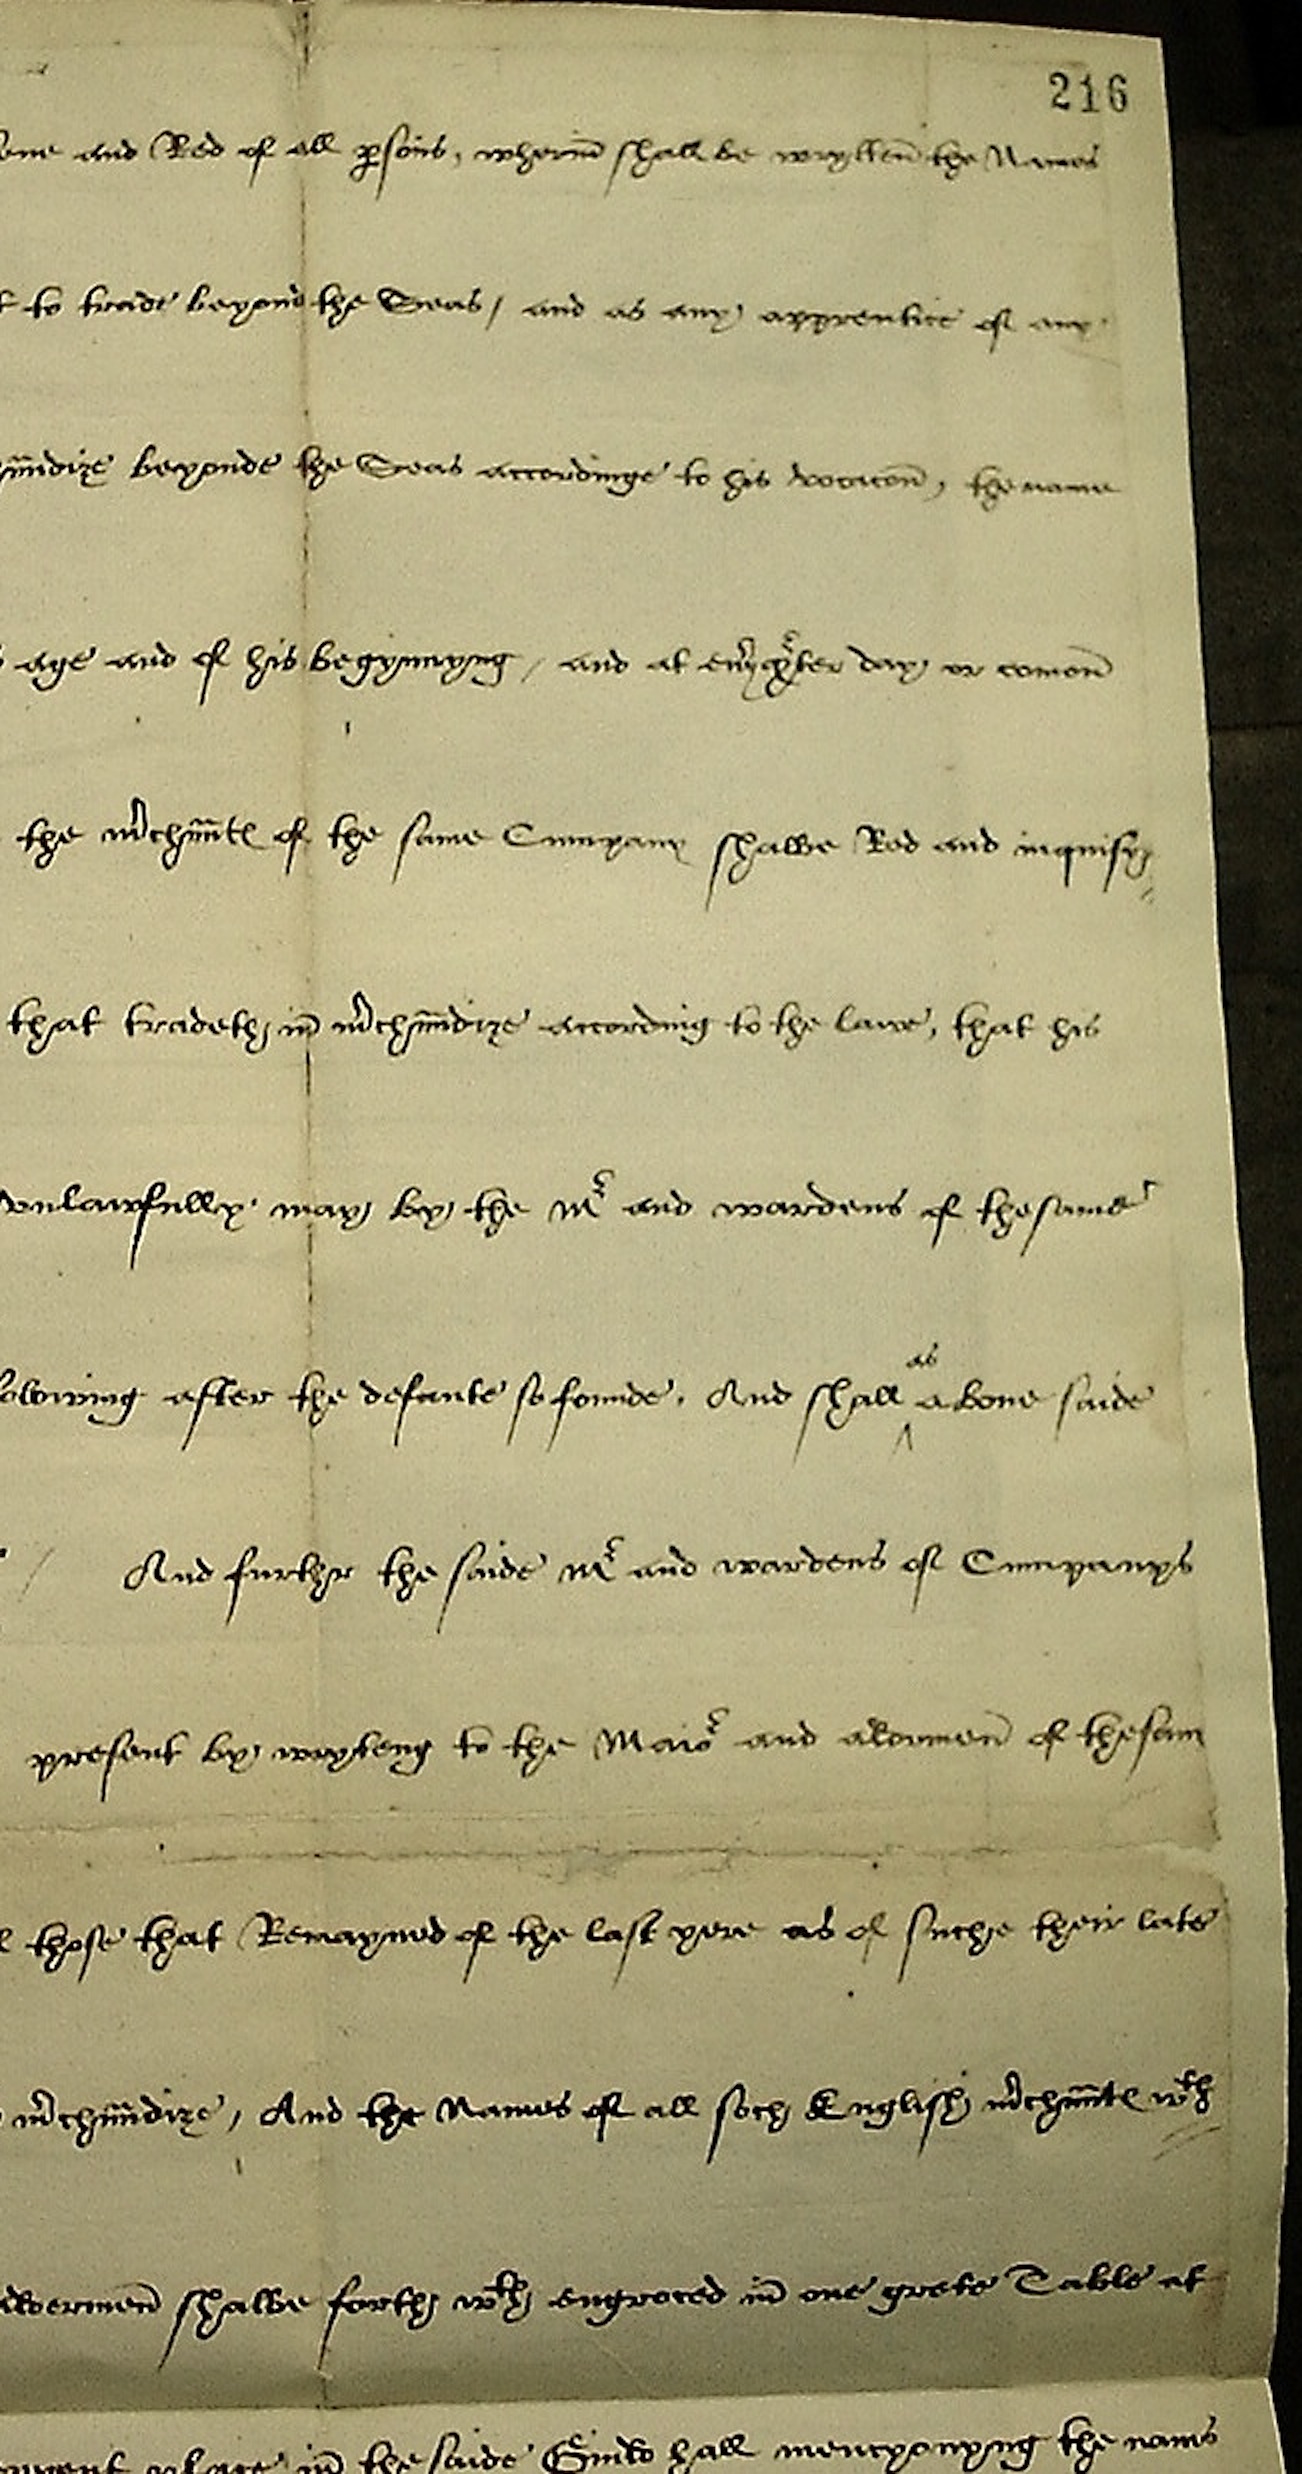 216
and Red of all psons, wherin shall be wrytten the Names
to trade beyond the Seas, and as any apprentice of any
beyonde the Seas accordinge to his vocacon, the name
age and of his begynnyng, and at evy qrter day or comon
the mrchantes of the same Cumpany shalbe Red and inquisy
that tradeth in mrchandize according to the lawe, that his
vnlawfully may by the Mr and wardens of thesame
after the defaute so founde. And shall
as
aboue saide
And further the saide Mr and wardens of Cumpanys
present by wryteng to the Maior and aldermen of thesam
those that Remayned of the last yere as of suche their late
mrchandize, And the Names of all soch English mrchantes wth
shalbe forth wth engroced in one grete Table at
place in the saide Guild hall mencyonyng the nams